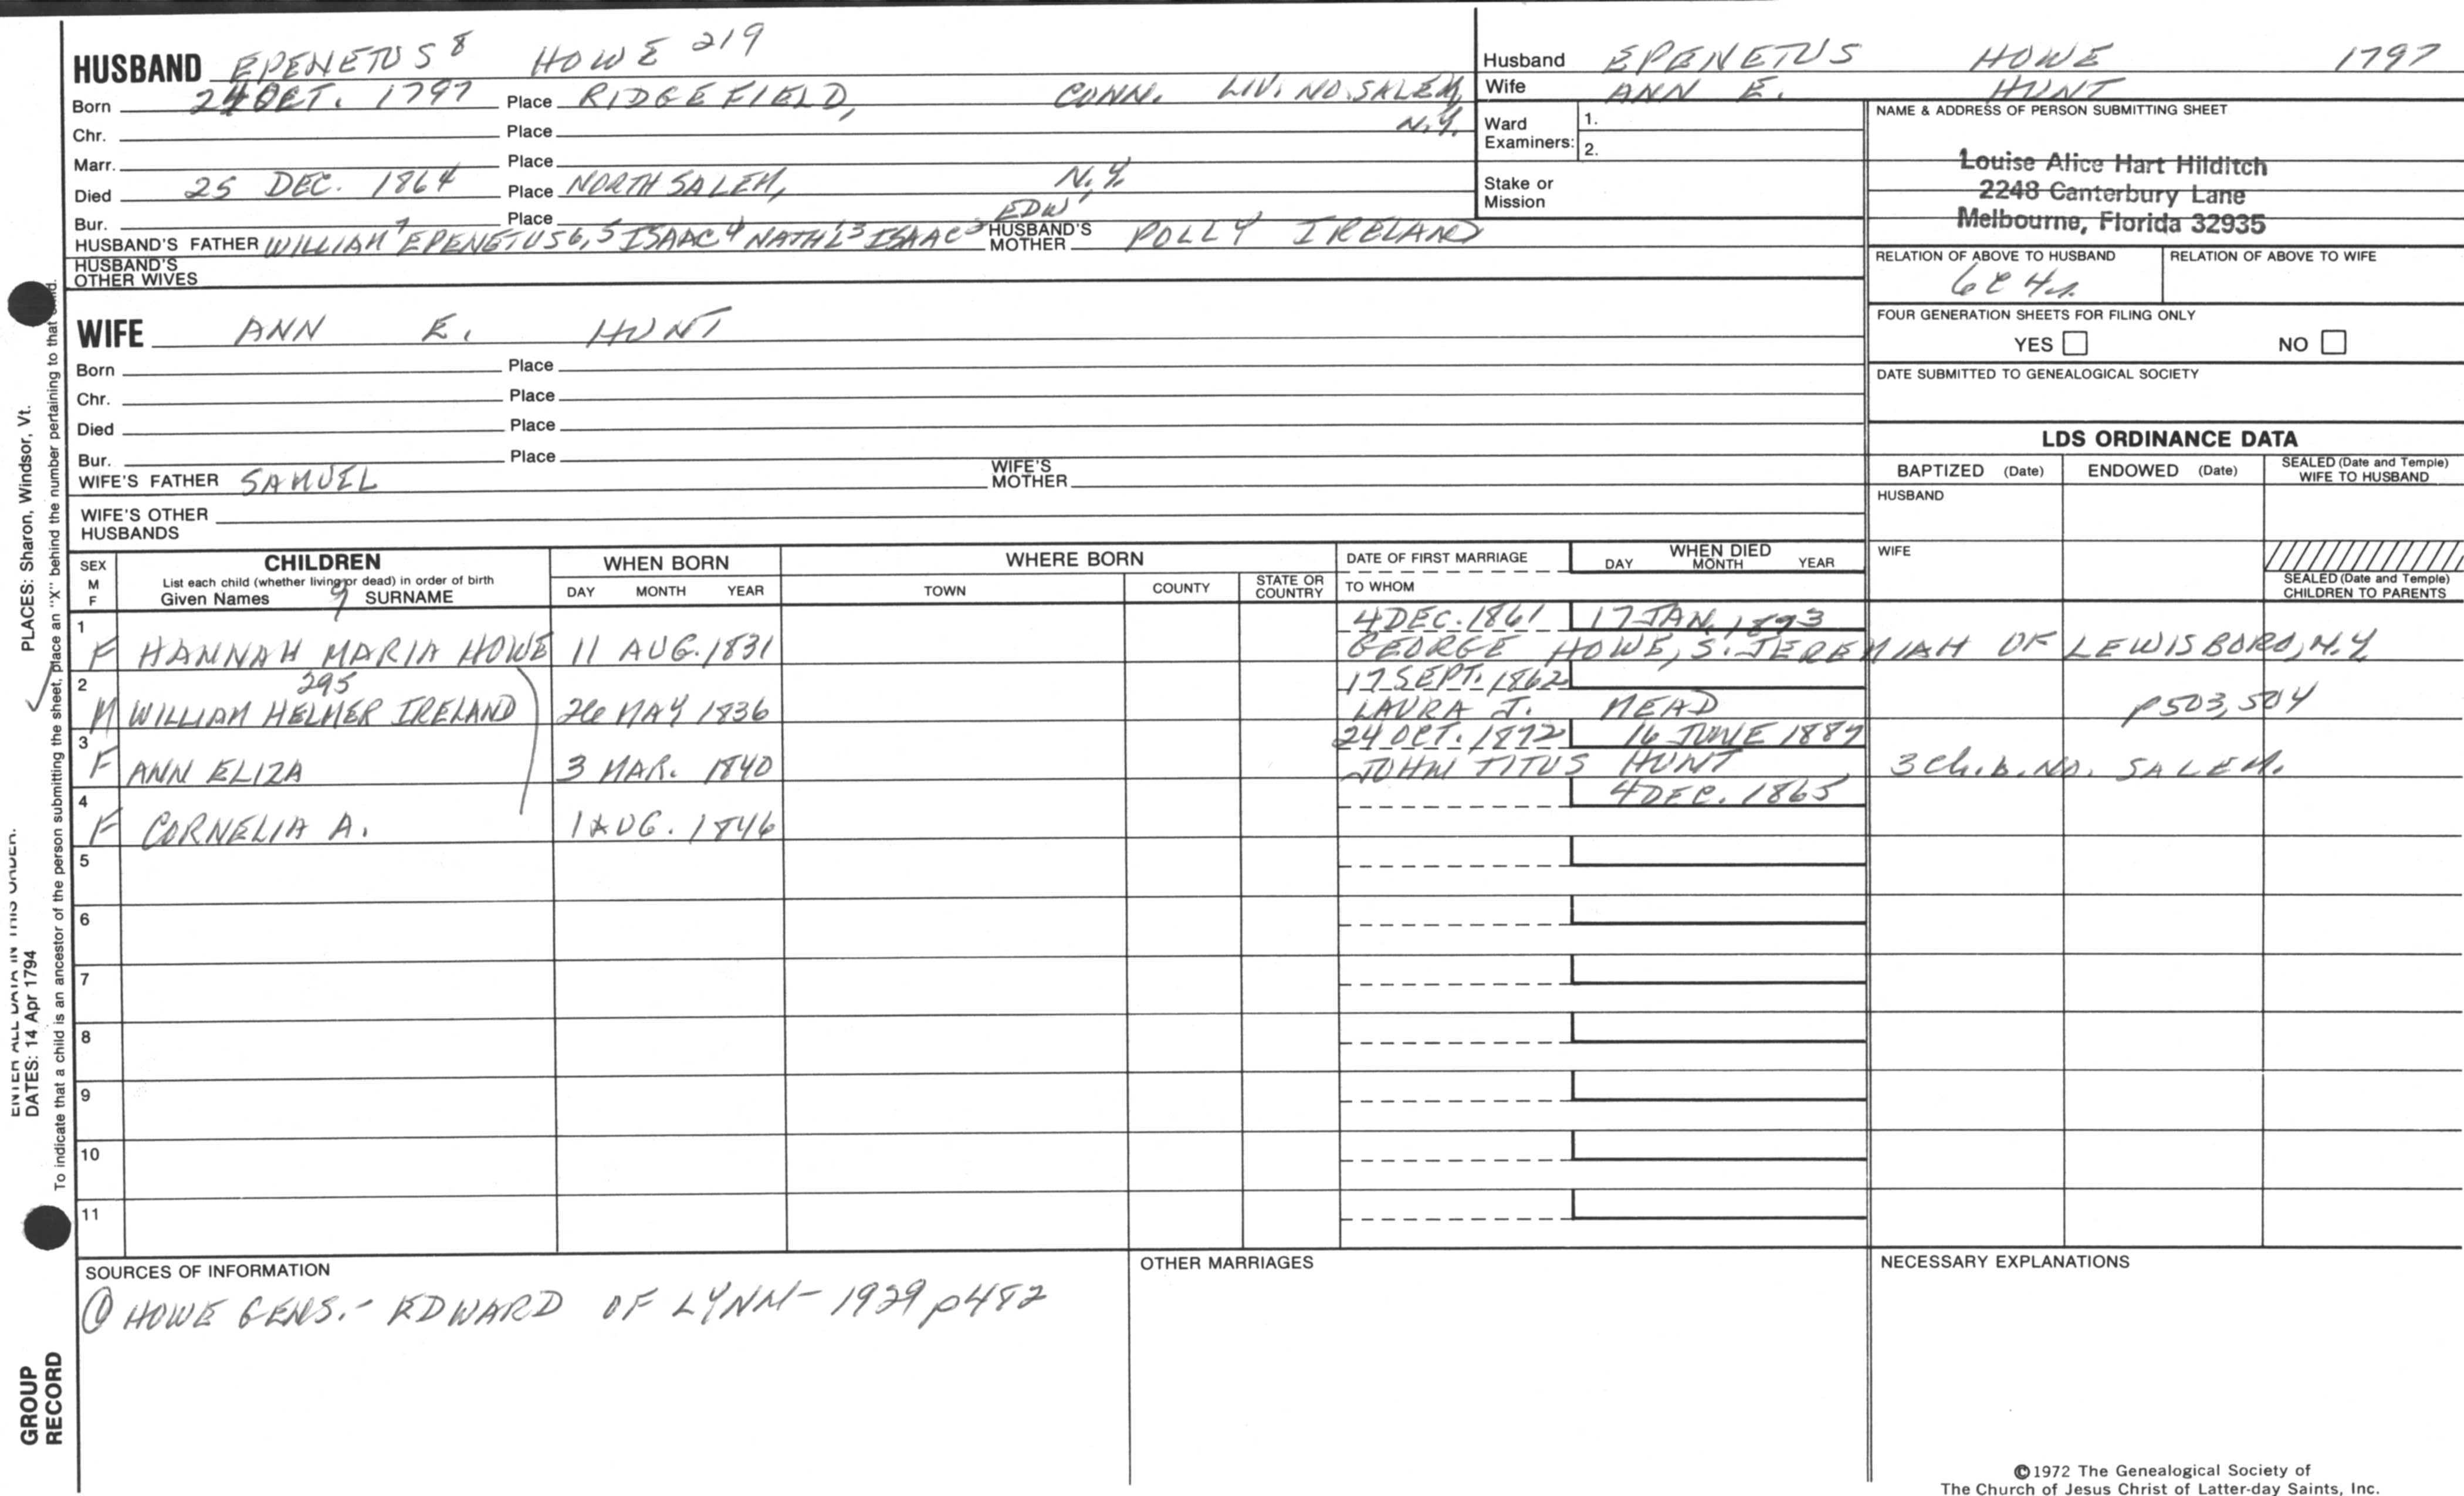 HUSBAND EPENETUS 8 HOWE 219
Born 24 OCT. 1797 Place RIDGEFIELD, CONN. LIV. NO. SALEM,
Chr. Place N.Y.
Marr. Place
Died 25 DEC. 1864 Place NORTH SALEM, N.Y.
Bur. Place EDW'
HUSBAND'S FATHER WILLIAM 7 EPENETUS 6, 5 ISAAC 4 NATH'L 3 ISAAC 2 HUSBAND'S MOTHER POLLY IRELAND
HUSBAND'S OTHER WIVES
Husband EPENETUS HOWE 1797
Wife ANN E. HUNT
Ward Examiners: 1.
2.
Stake or Mission
NAME & ADDRESS OF PERSON SUBMITTING SHEET
Louise Alice Hart Hilditch
2248 Canterbury Lane
Melbourne, Florida 32935
RELATION OF ABOVE TO HUSBAND RELATION OF ABOVE TO WIFE
6C4r.
FOUR GENERATION SHEETS FOR FILING ONLY
YES NO
DATE SUBMITTED TO GENEALOGICAL SOCIETY
WIFE ANN E. HUNT
Born Place
Chr. Place
Died Place
Bur. Place
WIFE'S FATHER SAMUEL WIFE'S MOTHER
WIFE'S OTHER HUSBANDS
LDS ORDINANCE DATA
BAPTIZED (Date) ENDOWED (Date) SEALED (Date and Temple) WIFE TO HUSBAND
HUSBAND
WIFE
SEALED (Date and Temple) CHILDREN TO PARENTS
SEX M F
CHILDREN
List each child (whether living or dead) in order of birth
Given Names 9 SURNAME
WHEN BORN
DAY MONTH YEAR
WHERE BORN
TOWN COUNTY STATE OR COUNTRY
DATE OF FIRST MARRIAGE
TO WHOM
WHEN DIED
DAY MONTH YEAR
1 4 DEC. 1861 17 JAN. 1893
F HANNAH MARIA HOWE 11 AUG. 1831 GEORGE HOWE, S. JEREMIAH OF LEWISBORO, N.Y.
2 295 17 SEPT. 1862
M WILLIAM HELMER IRELAND 26 MAY 1836 LAURA J. MEAD p503, 504
3 24 OCT. 1872 16 JUNE 1887
F ANN ELIZA 3 MAR. 1840 JOHN TITUS HUNT 3 Ch. b. NO. SALEM.
4 4 DEC. 1865
F CORNELIA A. 1 AUG. 1846
5
6
7
8
9
10
11
SOURCES OF INFORMATION
① HOWE GENS. - EDWARD OF LYNN - 1929 p482
OTHER MARRIAGES
NECESSARY EXPLANATIONS
©1972 The Genealogical Society of
The Church of Jesus Christ of Latter-day Saints, Inc.
PLACES: Sharon, Windsor, Vt.
To indicate that a child is an ancestor of the person submitting the sheet, place an "X" behind the number pertaining to that child.
ENTER ALL DATA IN THIS ORDER:
DATES: 14 Apr 1794
GROUP
RECORD